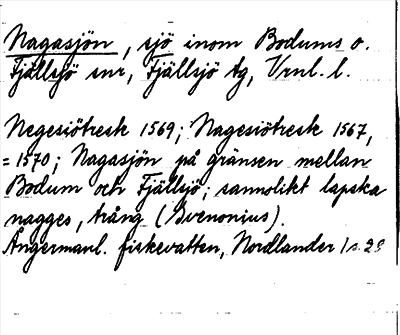 Nagasjön, sjö inom Bodums o.
Fjällsjö snr, Fjällsjö tg, Vrnl. l.
Negesiötresk 1569; Nagesiötresk 1567,
= 1570; Nagasjön på gränsen mellan
Bodum och Fjällsjö; sannolikt lapska
nagges, trång (Svenonius).
Ångermanl. fiskevatten, Nordlander / s. 28